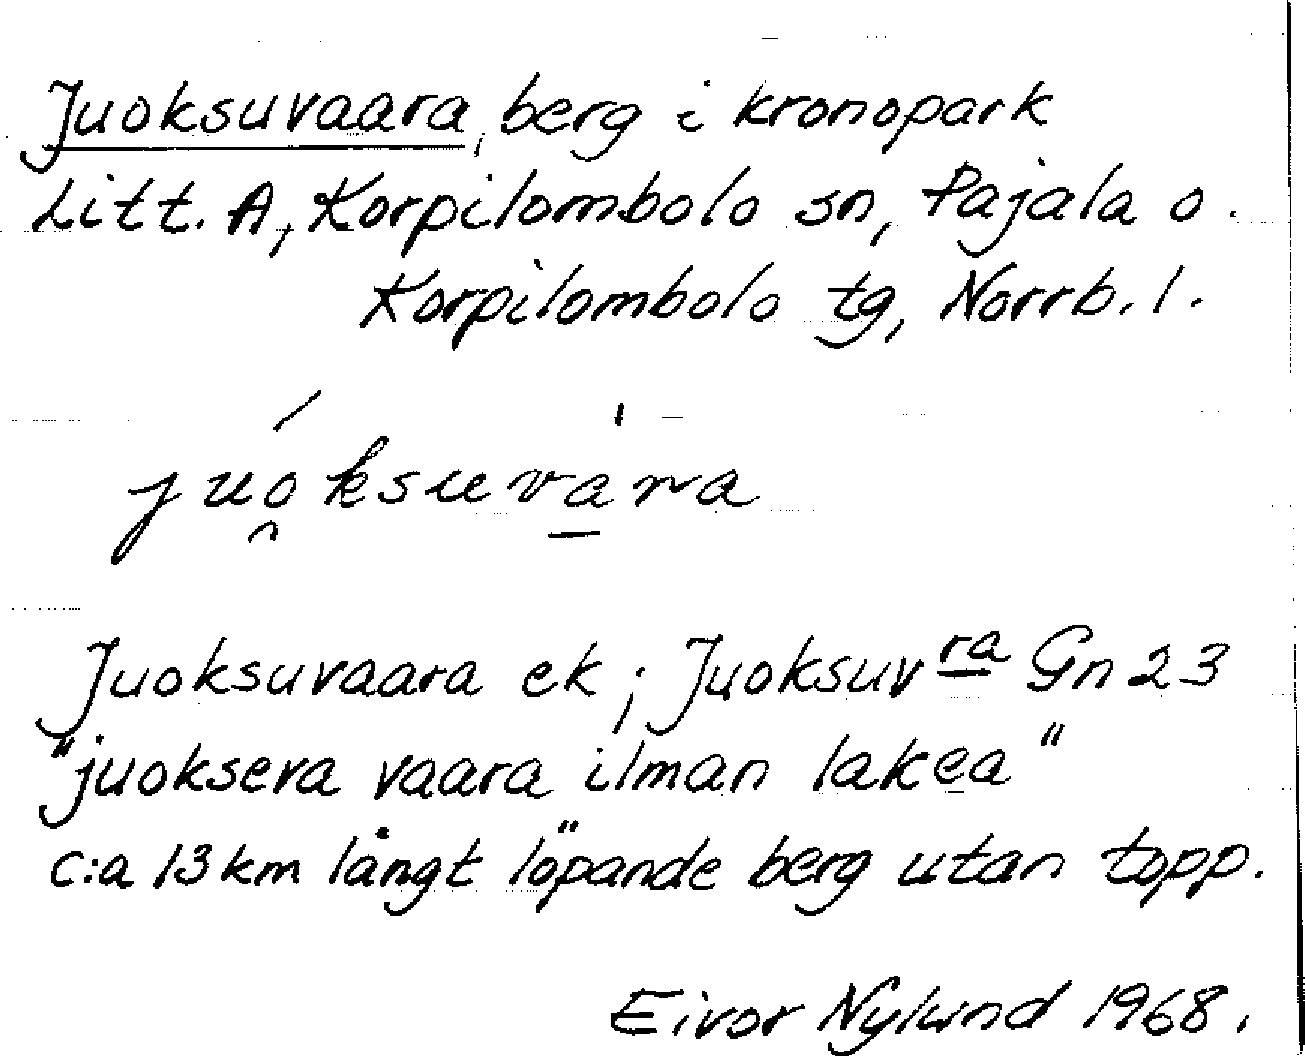 Juoksuvaara, berg i kronopark
Litt. A, Korpilombolo sn, Pajala o.
Korpilombolo tg, Norrb. l.
juo̯ksuva̱ra
Juoksuvaara ek; Juoksuvra Gn 23
"juokseva vaara ilman lakea"
c:a 13 km långt löpande berg utan topp.
Eivor Nylund 1968.